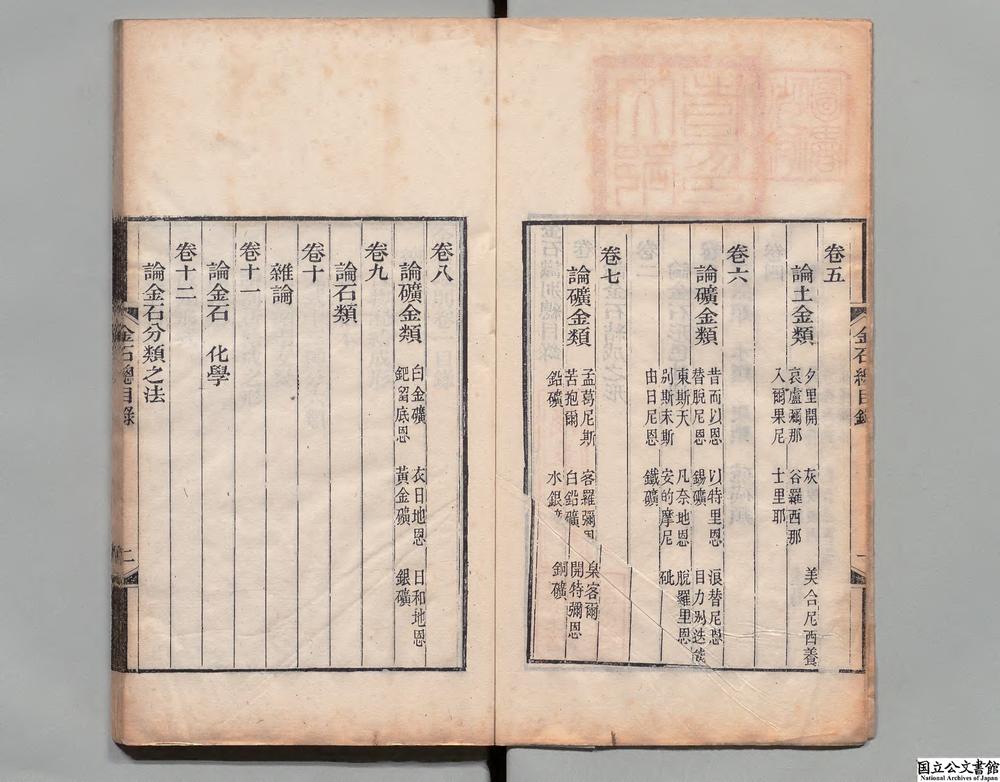 卷五
論土金類
夕里開 灰 美合尼西養
哀盧彌那 谷羅西那
入爾果尼 土里耶
卷六
論礦金類
昔而以恩 以特里恩 浪替尼恩
替脫尼恩 錫礦 目力別迭能
東斯天 凡奈地恩 脫羅里恩
别斯末斯 安的摩尼 砒
由日尼恩 鐵礦
卷七
論礦金類
孟葛尼斯 客羅彌恩 臬客爾
苦抱爾 白鉛礦 開特彌恩
鉛礦 水銀礦 銅礦
金石總目錄
一
卷八
論礦金類
白金礦 衣日地恩 日和地恩
鈀留底恩 黃金礦 銀礦
卷九
論石類
卷十
雜論
卷十一
論金石 化學
卷十二
論金石分類之法
金石總目錄
二
国立公文書館
National Archives of Japan